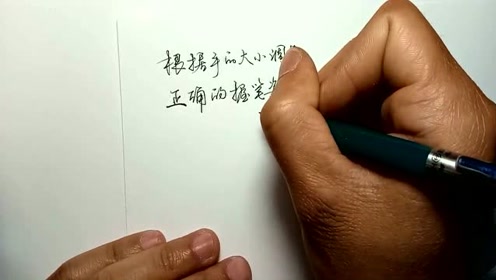 根据手的大小调
正确的握笔